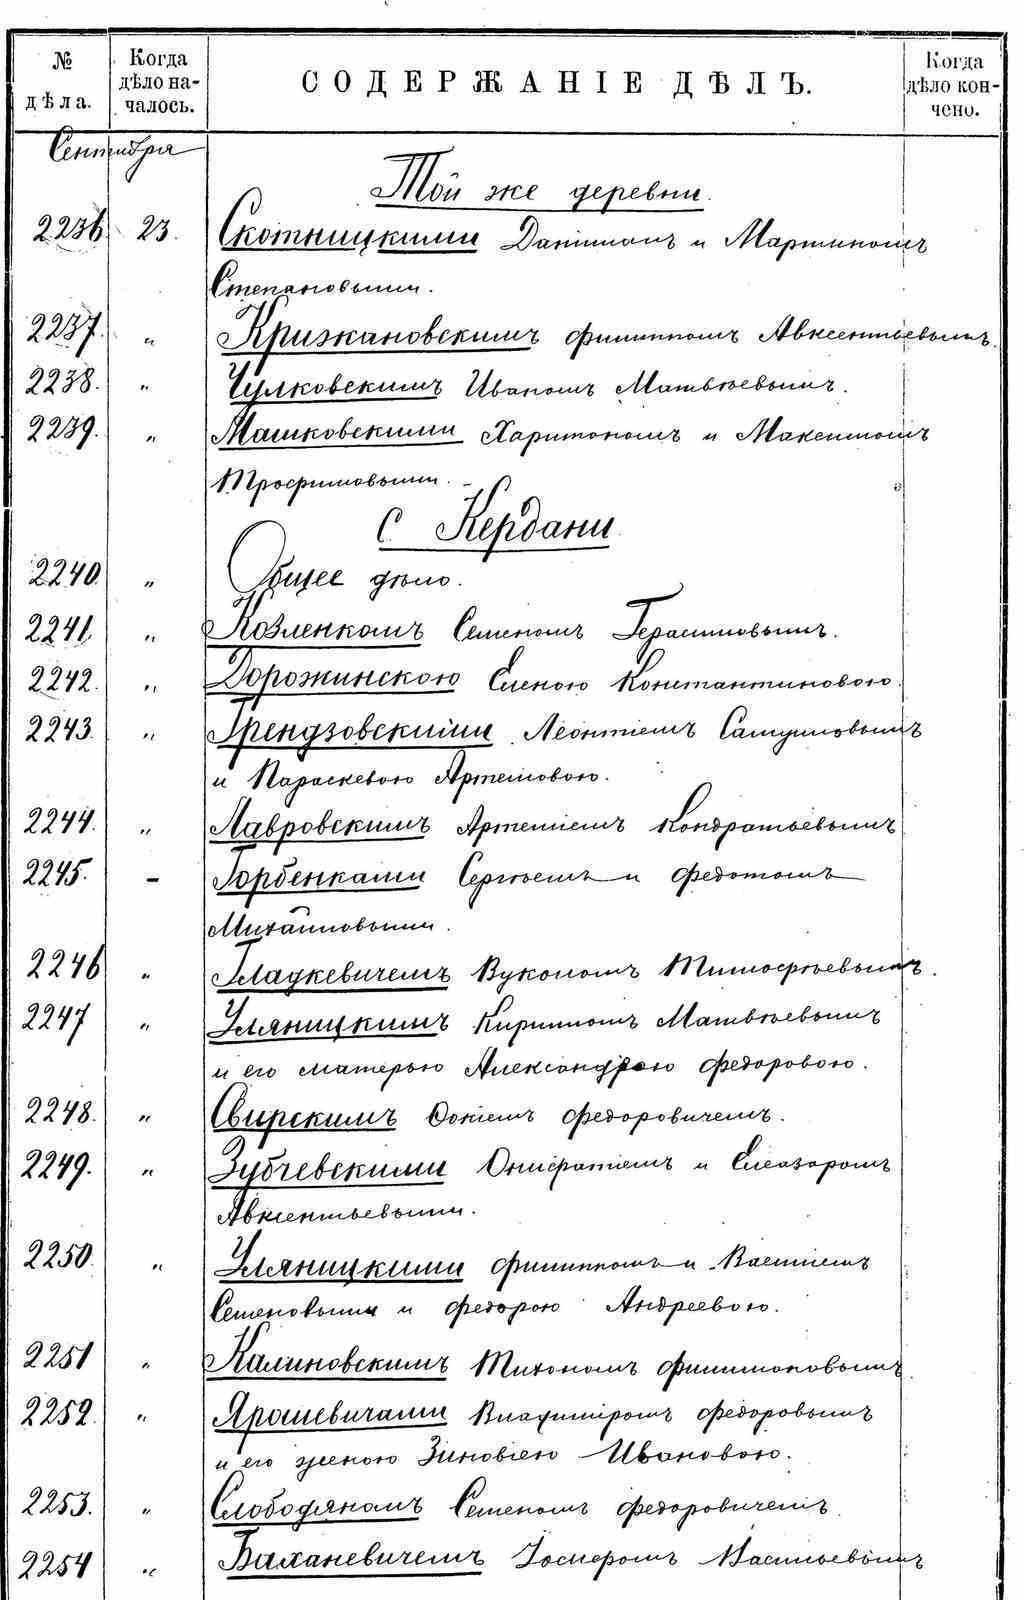 № дѣла. Когда дѣло началось. СОДЕРЖАНІЕ ДѢЛЪ. Когда дѣло кончено.
Сентября
Той же деревни.
2236 23. Скотницкими Даниломъ и Мартиномъ
Степановыми.
2237. „ Крижановскимъ Филиппомъ Авксентьевымъ.
2238. „ Чулковскимъ Иваномъ Матвѣевымъ.
2239. „ Машковскими Харитономъ и Максимомъ
Трофимовыми.
С Кердани
2240. „ Общее дѣло.
2241. „ Козленкомъ Семеномъ Герасимовымъ.
2242. „ Дорожинскою Еленою Константиновою.
2243. „ Грендзовскими Леонтіемъ Самуиловымъ
и Параскевою Артемовою.
2244. „ Лавровскимъ Артеміемъ Кондратьевымъ
2245. – Горбенками Сергѣемъ и Федотомъ
Михайловыми.
2246 „ Гладкевичемъ Вуколомъ Тимофѣевымъ.
2247 „ Уляницкимъ Кирилломъ Матвѣевымъ
и его матерью Александрою Федоровою.
2248. „ Свирскимъ Фокіемъ Федоровичемъ.
2249. „ Зубчевскими Онисфатіемъ и Елеазаромъ
Авксентьевыми.
2250. „ Уляницкими Филиппомъ и Василіемъ
Семеновыми и Федорою Андреевою.
2251 „ Калиновскимъ Тихономъ Филимоновымъ
2252. „ Ярошевичами Владиміромъ Федоровымъ
и его женою Зиновіею Ивановою.
2253. „ Слободяномъ Семеномъ Федоровичемъ
2254 „ Баханевичемъ Іосифомъ Васильевымъ